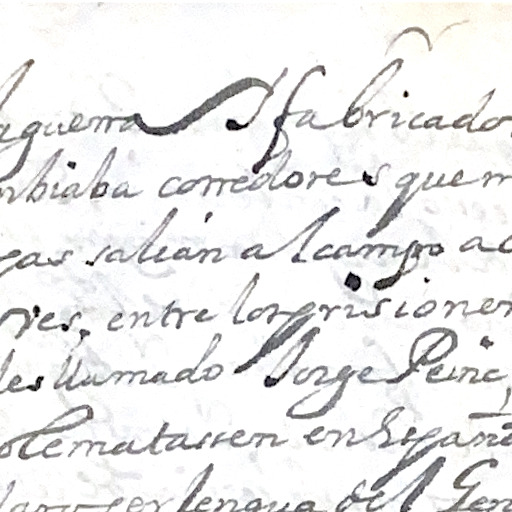 laguerra y fabricado
mbiaba corredores quem
gas salian alcampo ac
res, entre los prisioner
les llamado Jorge Peine,
olematassen en España
laro ser lengua del Gen